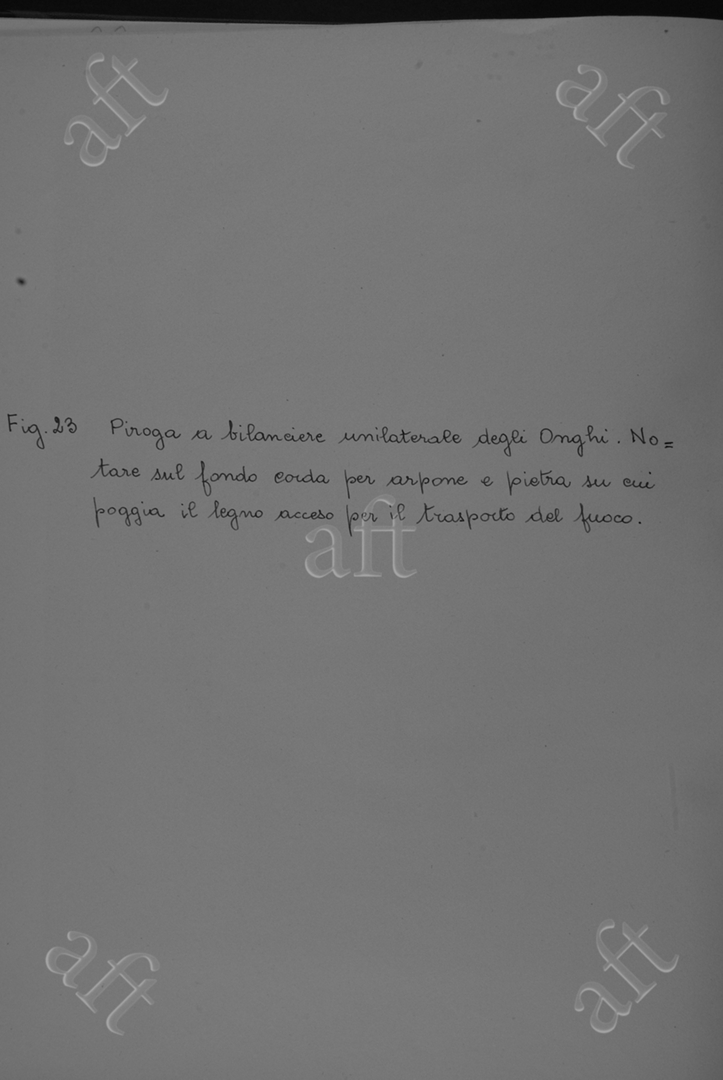 aft
aft
Fig. 23 Piroga a bilanciere unilaterale degli Onghi. No=
tare sul fondo corda per arpone e pietra su cui
poggia il legno acceso per il trasporto del fuoco.
aft
aft
aft